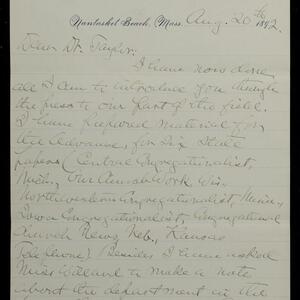 Nantasket Beach, Mass. Aug. 20th 1892.
Dear Dr. Taylor:
I have now done
all I can to introduce you through
the press to our part of the field.
I have prepared material for
the Advance, for six State
papers (Central Congregationalist,
Mich., Our Church Work, Wis.,
Northwestern Congregationalist, Minn.,
Iowa Congregationalist, Congregational
Church News, Neb., Kansas
Telephone) Besides I have asked
Miss Willard to make a note
about the department in the